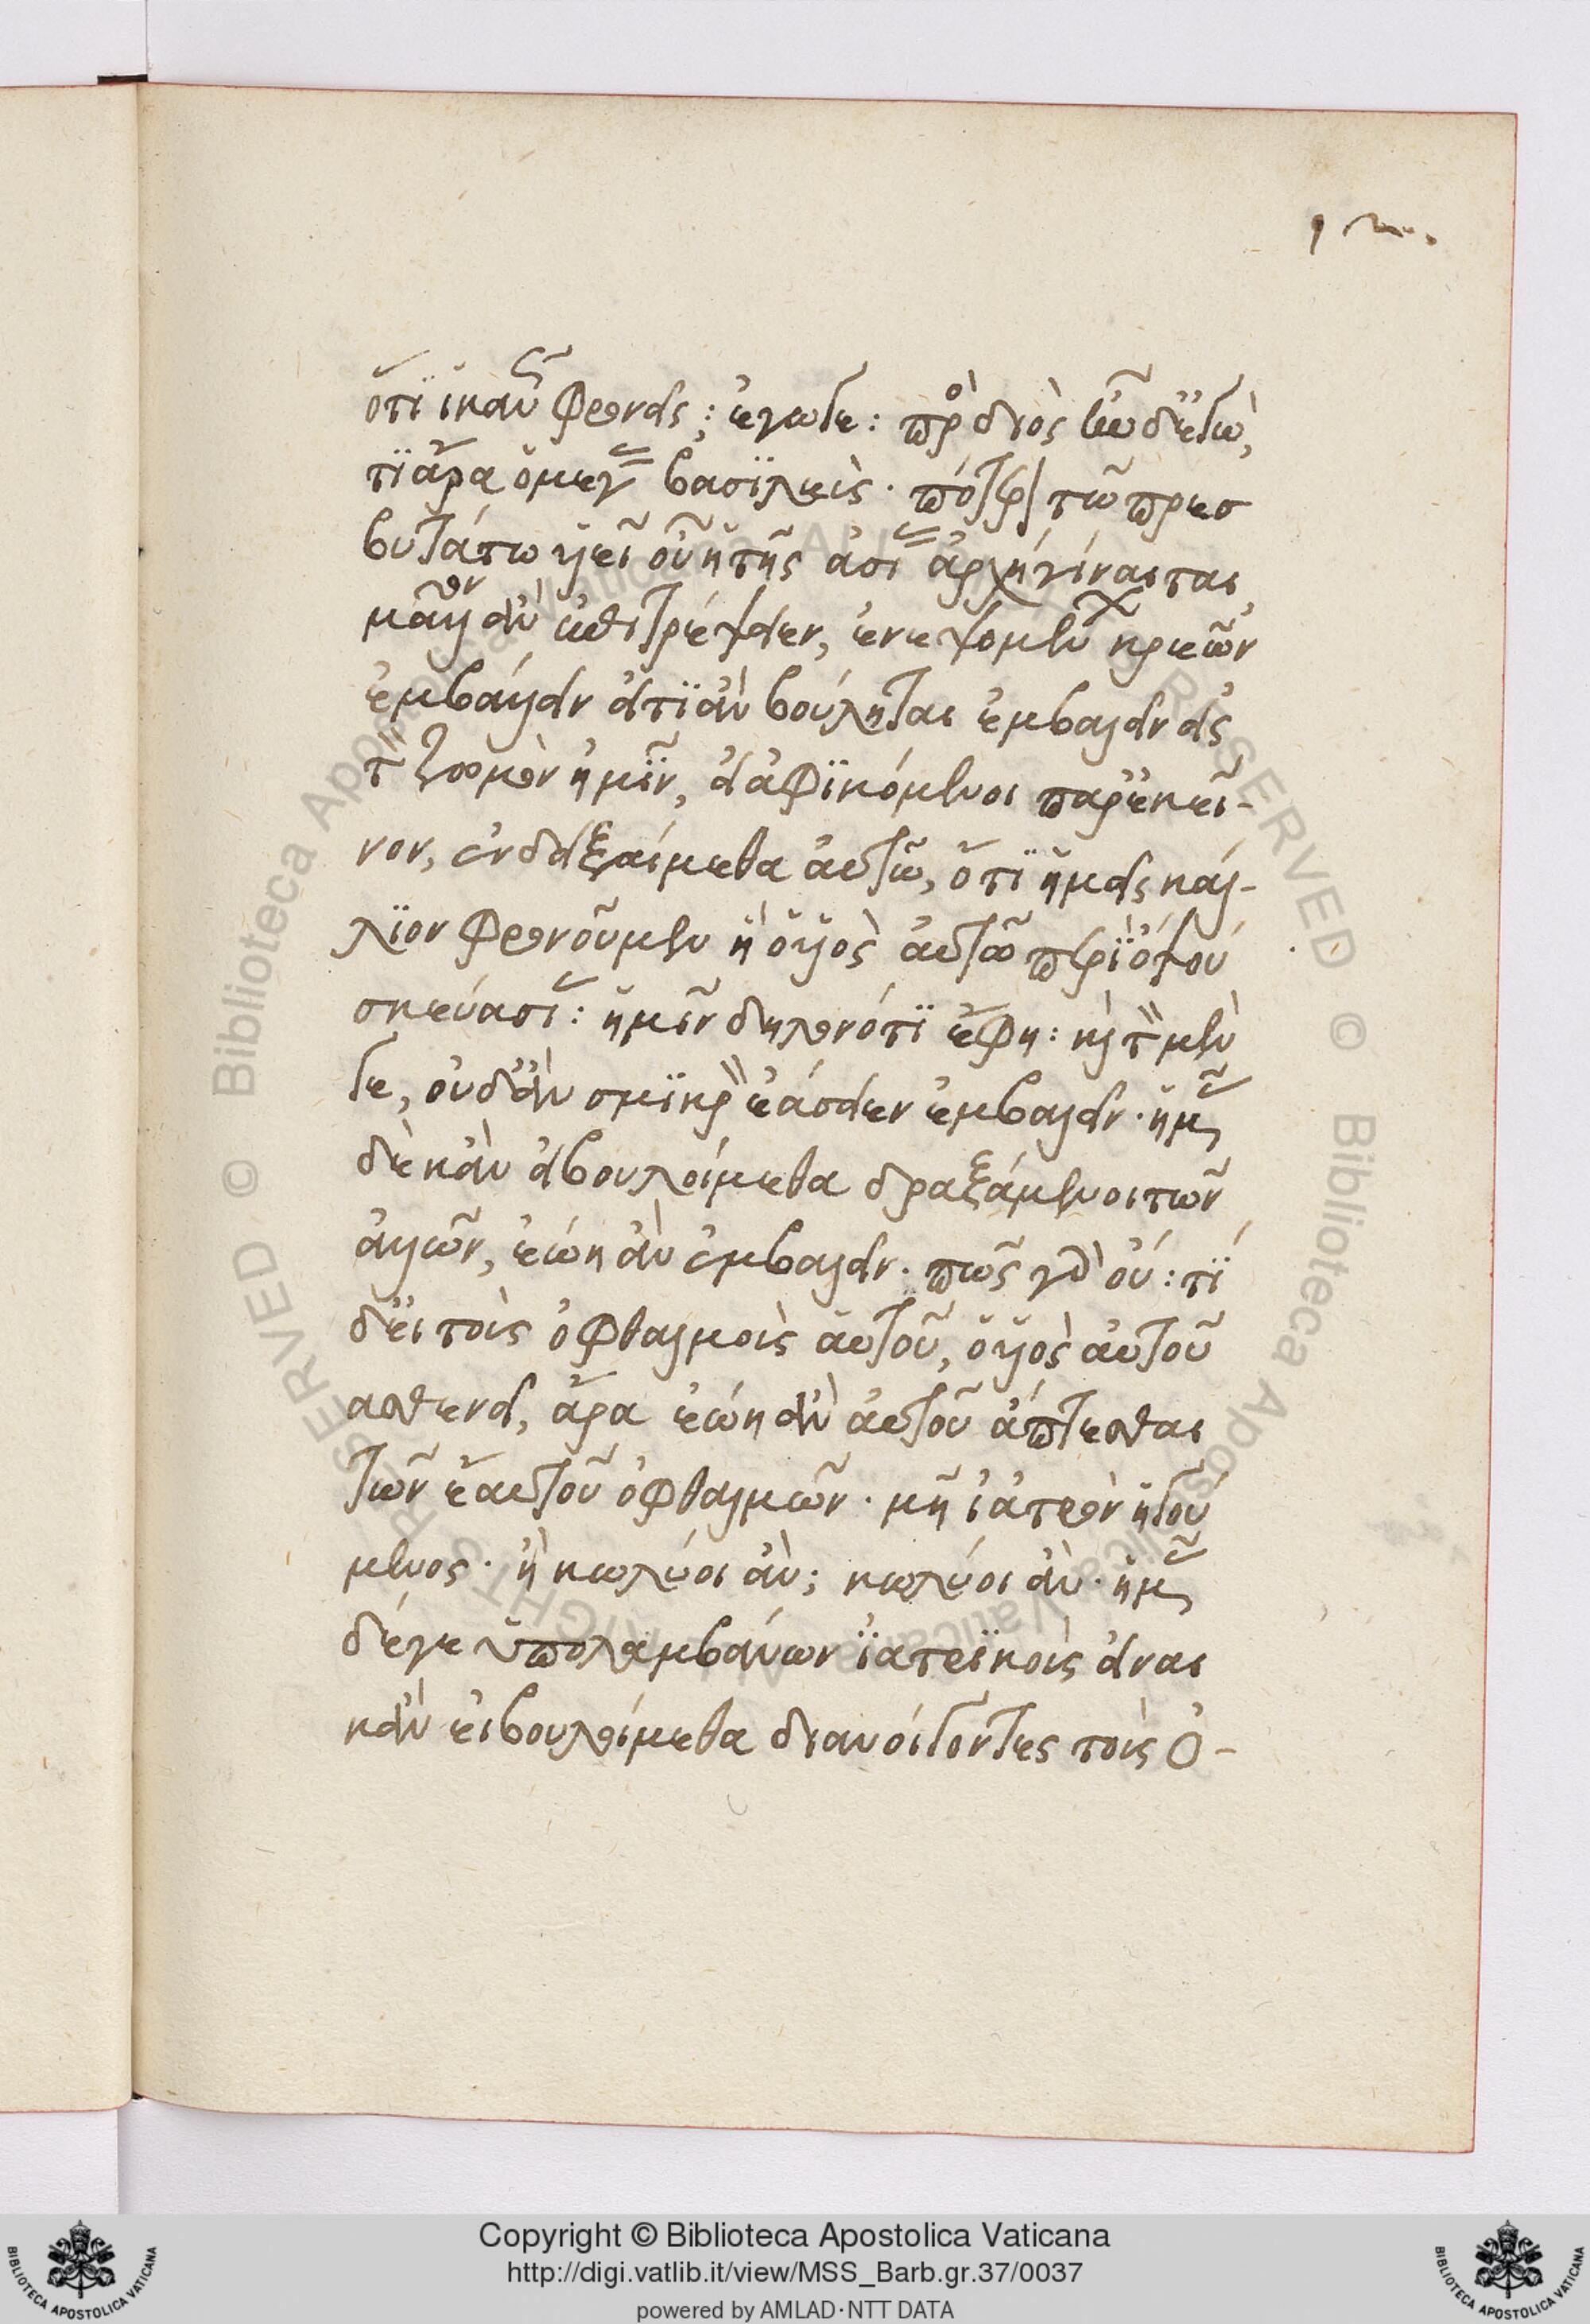 ὅτι ἱκανῶς φρονεῖς: ἔγωγε: πρὸς διὸς ὦ δ' ἐγὼ,
τί ἄρα ὁ μέγας βασιλεὺς· πότερον τῶ πρεσ
βυτάτω ὑεῖ οὗ ἡ τῆς ἀσίας ἀρχὴ γίνεται
μᾶλλον ἂν ἐπιτρέψειεν, ἑνεψομένων κρεῶν
ἐμβάλλειν εἴ τι ἂν βούληται ἐμβαλεῖν εἰς
τὸν ζωμὸν ἡμῖν, εἰ ἀφικόμενοι παρ' ἐκεῖ-
νον, ἐνδειξαίμεθα αὐτῶ, ὅτι ἡμεῖς κάλ-
λιον φρονοῦμεν ἢ ὁ ὑὸς αὐτοῦ περὶ ὄψου
σκευασίας: ἡμῖν δηλονότι ἔφη: καὶ τὸν μέν
γε, οὐδ' ἂν σμικρὸν ἐάσειεν ἐμβαλεῖν· ἡμᾶς
δὲ κἂν εἰ βουλοίμεθα δραξάμενοι τῶν
ἁλῶν, ἐώη ἂν ἐμβαλεῖν· πῶς γὰρ οὔ: τί
δ' εἰ τοὺς ὀφθαλμοὺς αὐτοῦ, ὁ ὑὸς αὐτοῦ
ἀσθενεῖ, ἆρα ἐώη ἂν αὐτοῦ ἅπτεσθαι
τῶν ἑαυτοῦ ὀφθαλμῶν· μὴ ἰατρὸν ἡγού
μενος· ἢ κωλύοι ἄν; κωλύοι ἄν· ἡμᾶς
δέ γε ὑπολαμβάνων ἰατρικοὺς εἶναι
κἂν εἰ βουλοίμεθα διανοίγοντες τοὺς ὀ-
Copyright © Biblioteca Apostolica Vaticana
http://digi.vatlib.it/view/MSS_Barb.gr.37/0037
powered by AMLAD·NTT DATA